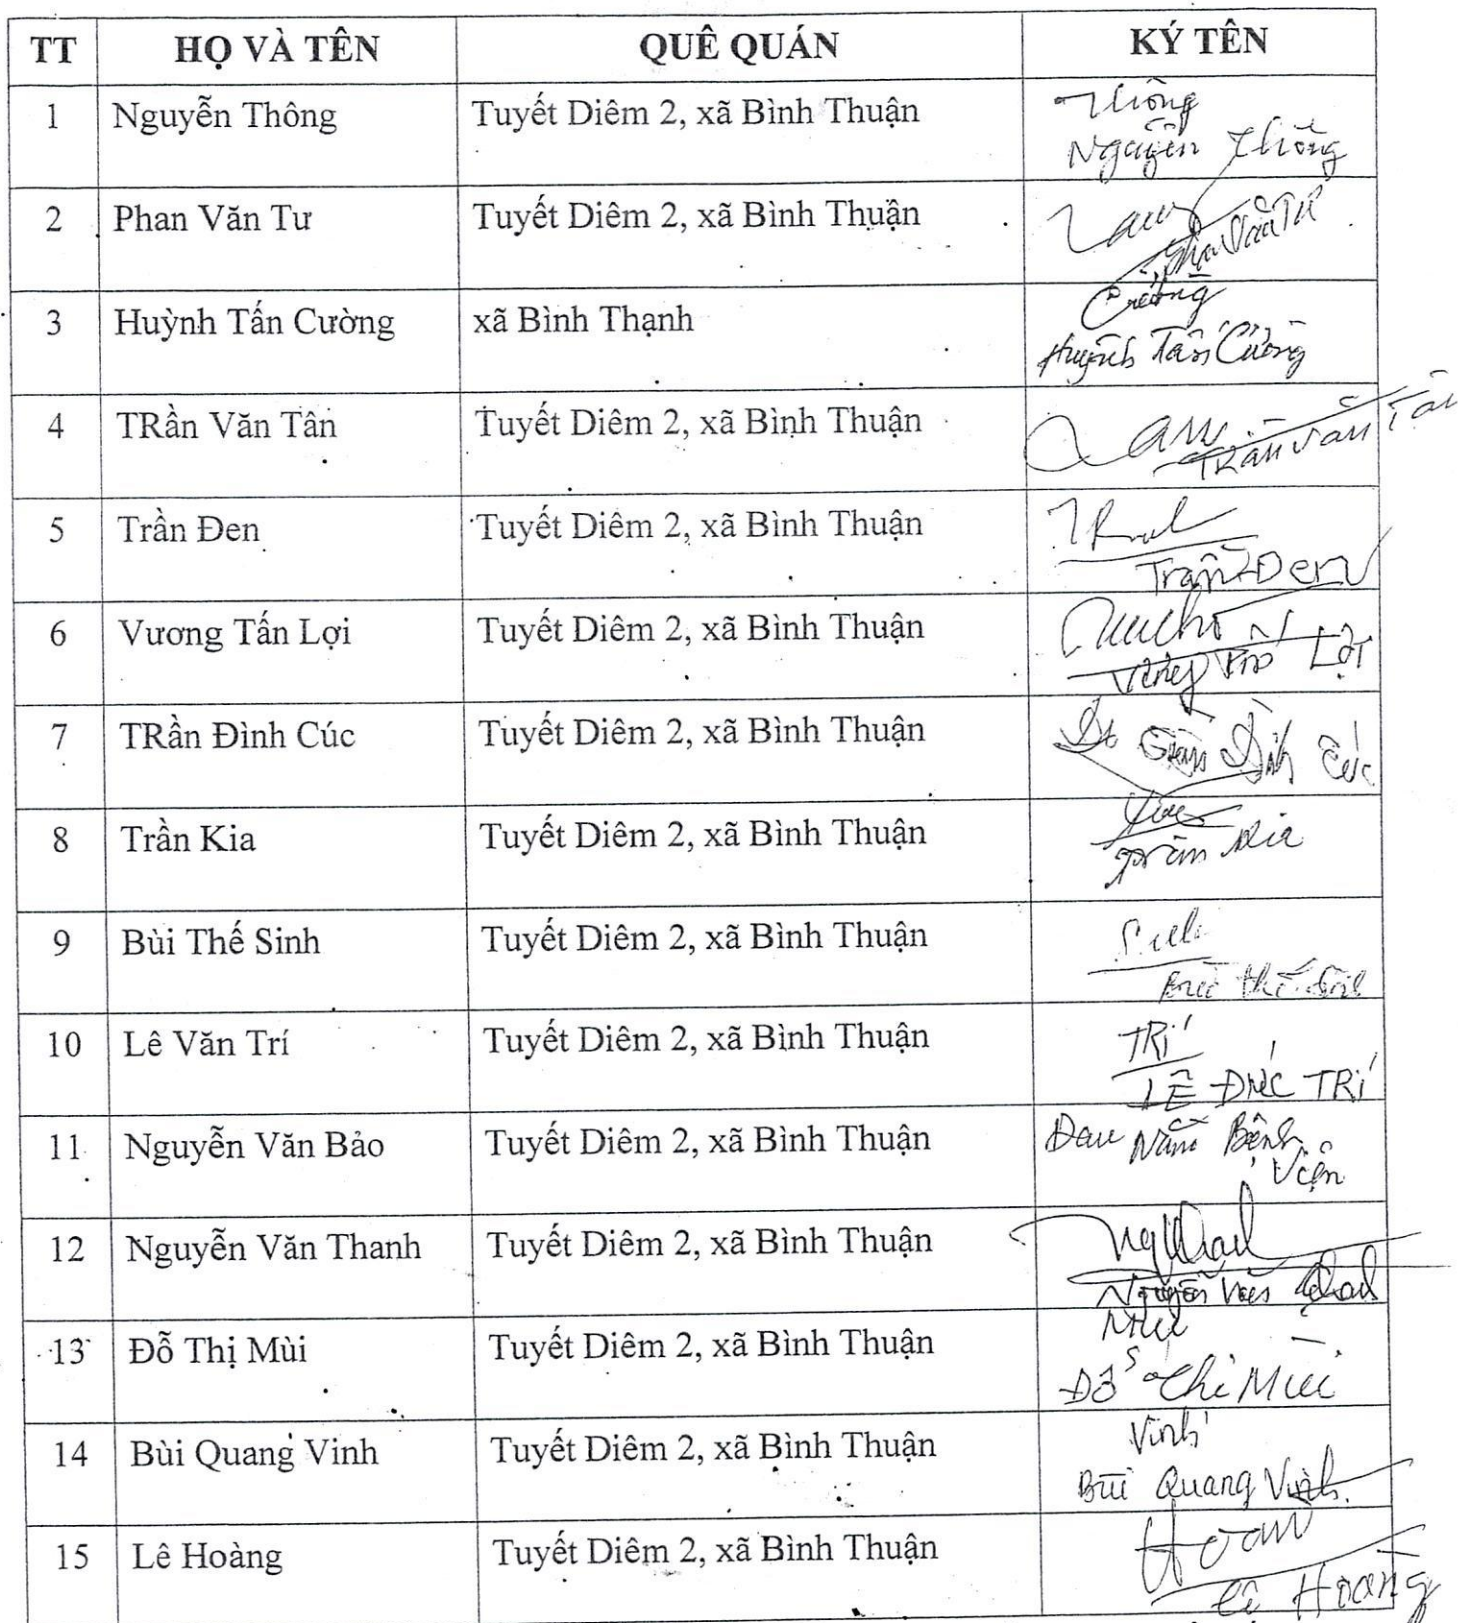 TT HỌ VÀ TÊN QUÊ QUÁN KÝ TÊN
1 Nguyễn Thông Tuyết Diêm 2, xã Bình Thuận Thông
Nguyễn Thông
2 Phan Văn Tư Tuyết Diêm 2, xã Bình Thuận
Phan Văn Tư
3 Huỳnh Tấn Cường xã Bình Thạnh Cường
Huỳnh Tấn Cường
4 TRần Văn Tân Tuyết Diêm 2, xã Bình Thuận
TRần Văn Tân
5 Trần Đen Tuyết Diêm 2, xã Bình Thuận
Trần Đen
6 Vương Tấn Lợi Tuyết Diêm 2, xã Bình Thuận
Lợi
7 TRần Đình Cúc Tuyết Diêm 2, xã Bình Thuận Đình Cúc
8 Trần Kia Tuyết Diêm 2, xã Bình Thuận
Trần Kia
9 Bùi Thế Sinh Tuyết Diêm 2, xã Bình Thuận
Bùi thế Sinh
10 Lê Văn Trí Tuyết Diêm 2, xã Bình Thuận TRí
LÊ ĐỨC TRí
11 Nguyễn Văn Bảo Tuyết Diêm 2, xã Bình Thuận Đau Nằm Bệnh
Viện
12 Nguyễn Văn Thanh Tuyết Diêm 2, xã Bình Thuận
Nguyễn Văn Thanh
13 Đỗ Thị Mùi Tuyết Diêm 2, xã Bình Thuận Mùi
Đỗ Thị Mùi
14 Bùi Quang Vinh Tuyết Diêm 2, xã Bình Thuận Vinh
Bùi Quang Vinh
15 Lê Hoàng Tuyết Diêm 2, xã Bình Thuận Hoàn
Lê Hoàng